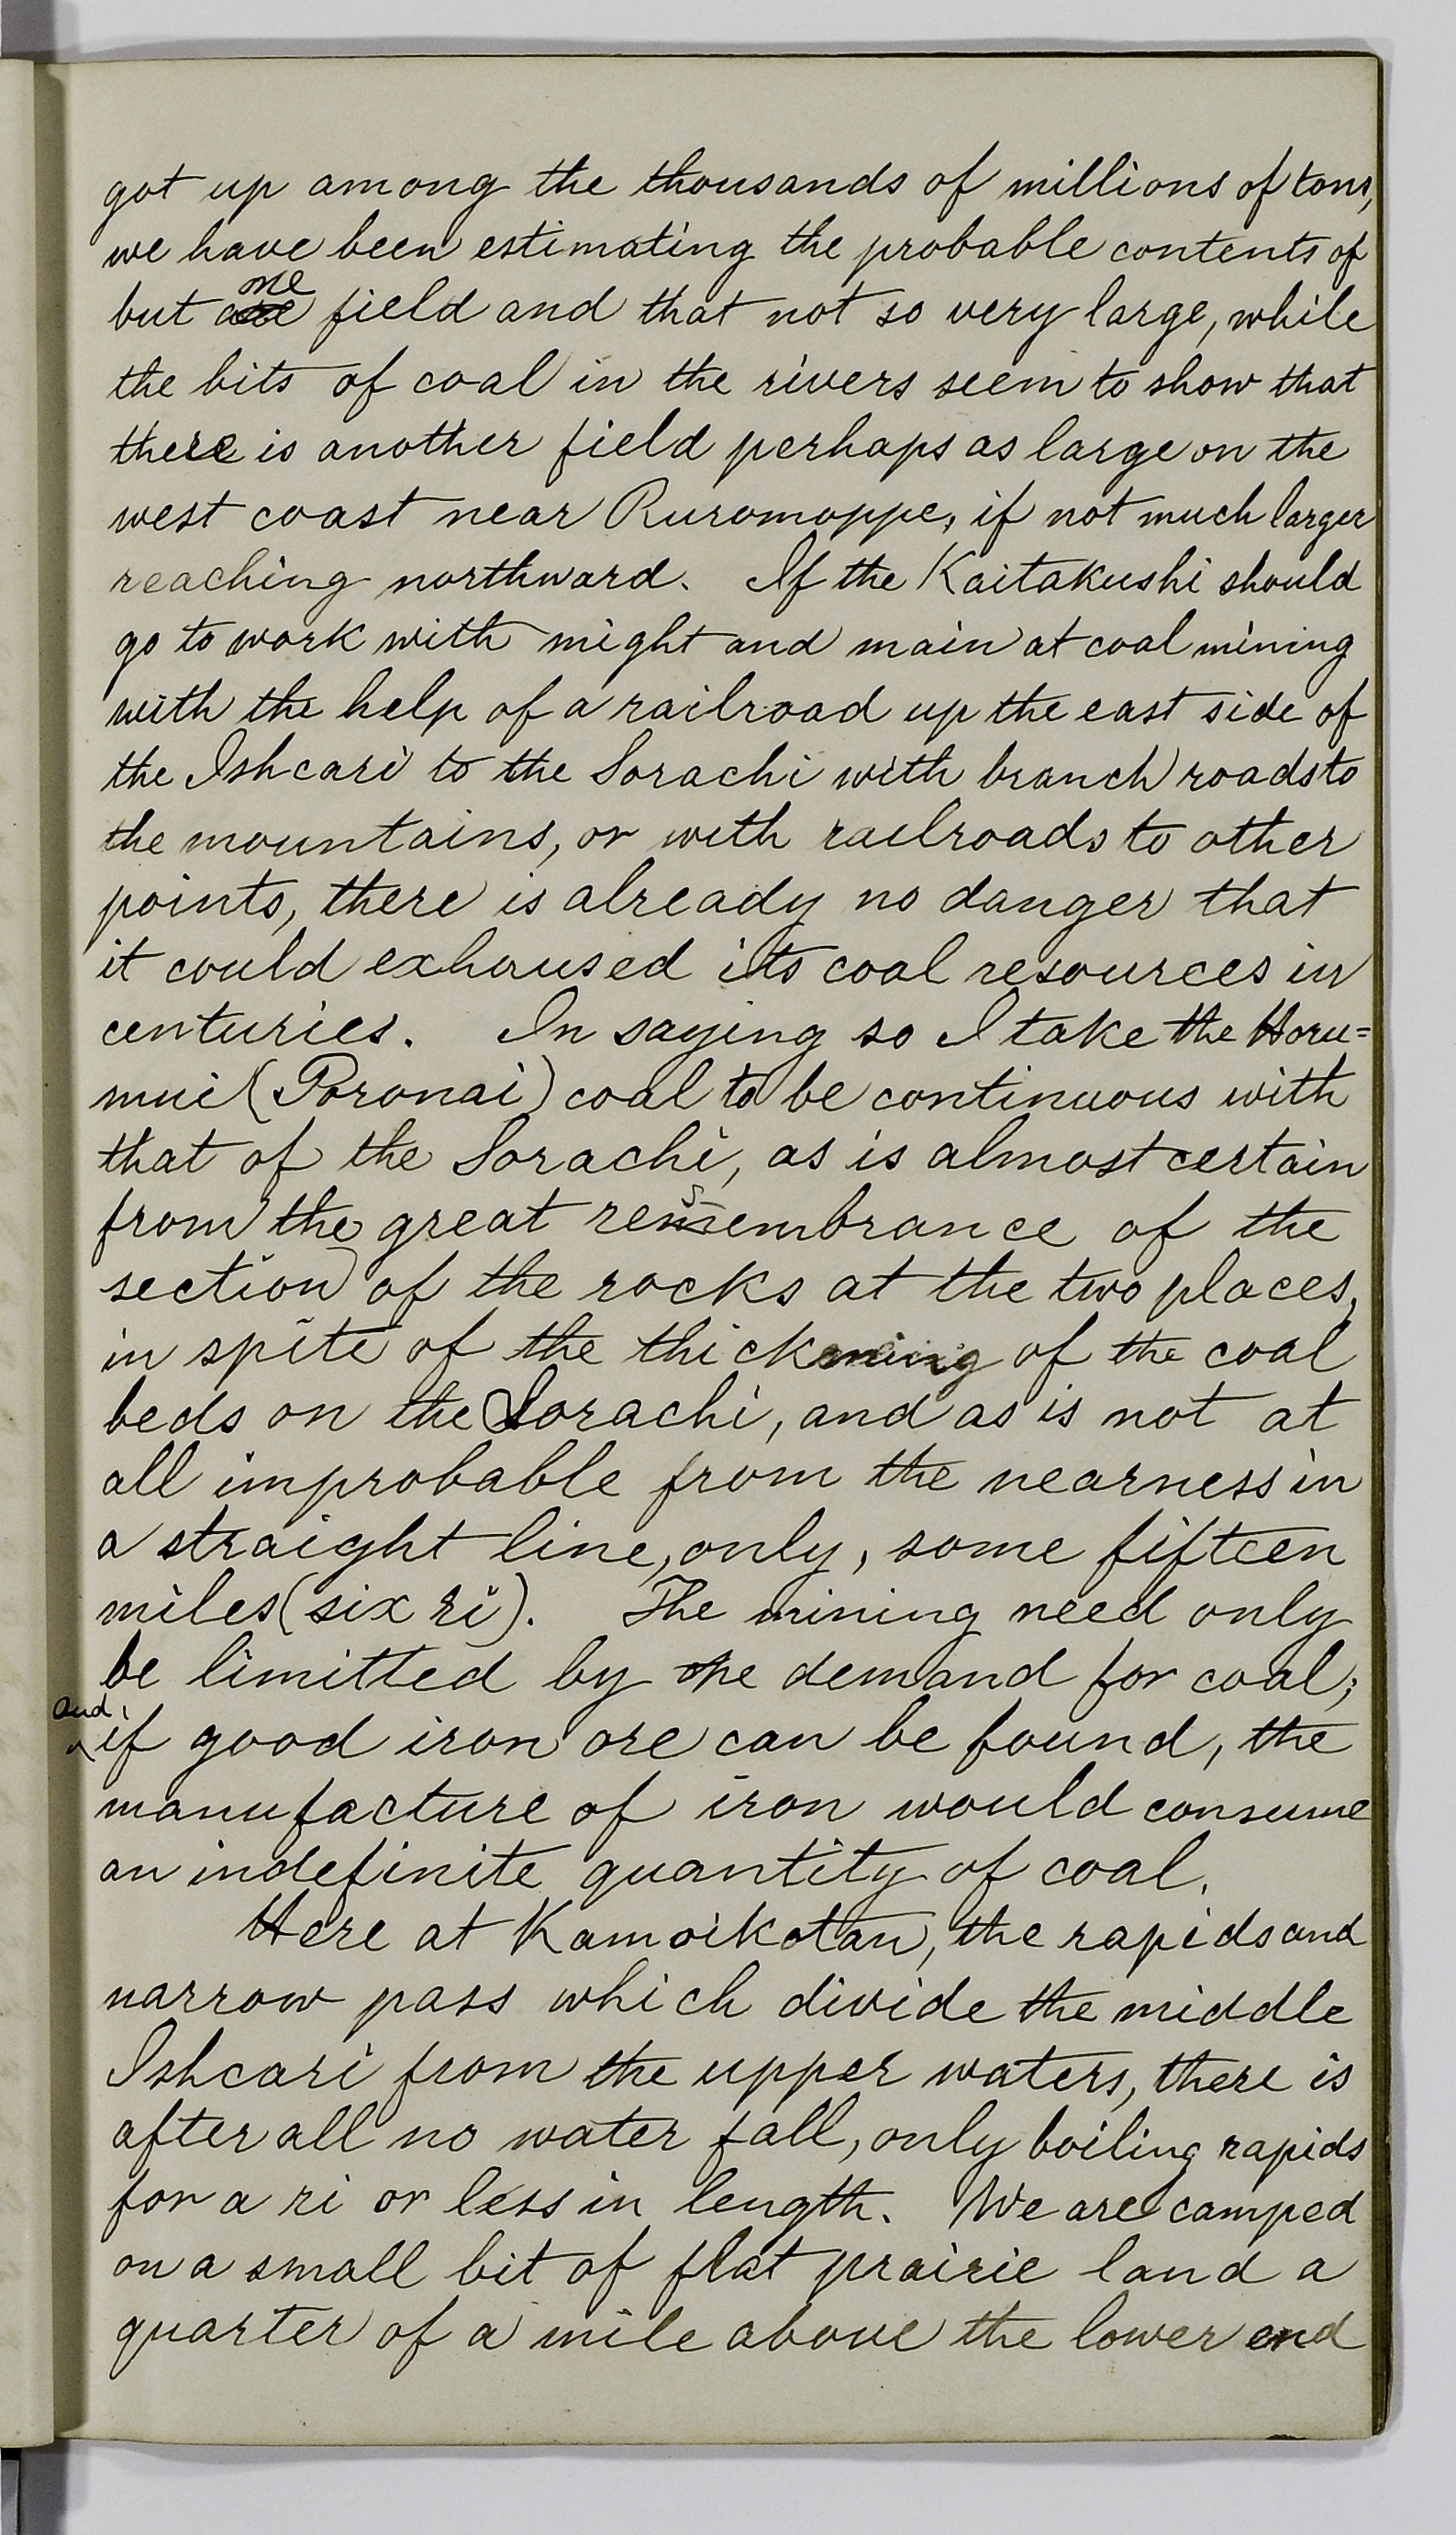 got up among the thousands of millions of tons,
we have been estimating the probable contents of
but one field and that not so very large, while
the bits of coal in the rivers seem to show that
there is another field perhaps as large on the
west coast near Ruromoppe, if not much larger
reaching northward. If the Kaitakushi should
go to work with might and main at coal mining
with the help of a railroad up the east side of
the Ishcari to the Sorachi with branch roads to
the mountains, or with railroads to other
points, there is already no danger that
it could exhaused its coal resources in
centuries. In saying so I take the Horu=
mui (Poronai) coal to be continuous with
that of the Sorachi, as is almost certain
from the great resembrance of the
section of the rocks at the two places,
in spite of the thickening of the coal
beds on the Sorachi, and as is not at
all improbable from the nearness in
a straight line, only, some fifteen
miles (six ri). The mining need only
be limitted by the demand for coal;
and if good iron ore can be found, the
manufacture of iron would consume
an indefinite quantity of coal.
Here at Kamoikotan, the rapids and
narrow pass which divide the middle
Ishcari from the upper waters, there is
after all no water fall, only boiling rapids
for a ri or less in length. We are camped
on a small bit of flat prairie land a
quarter of a mile above the lower end